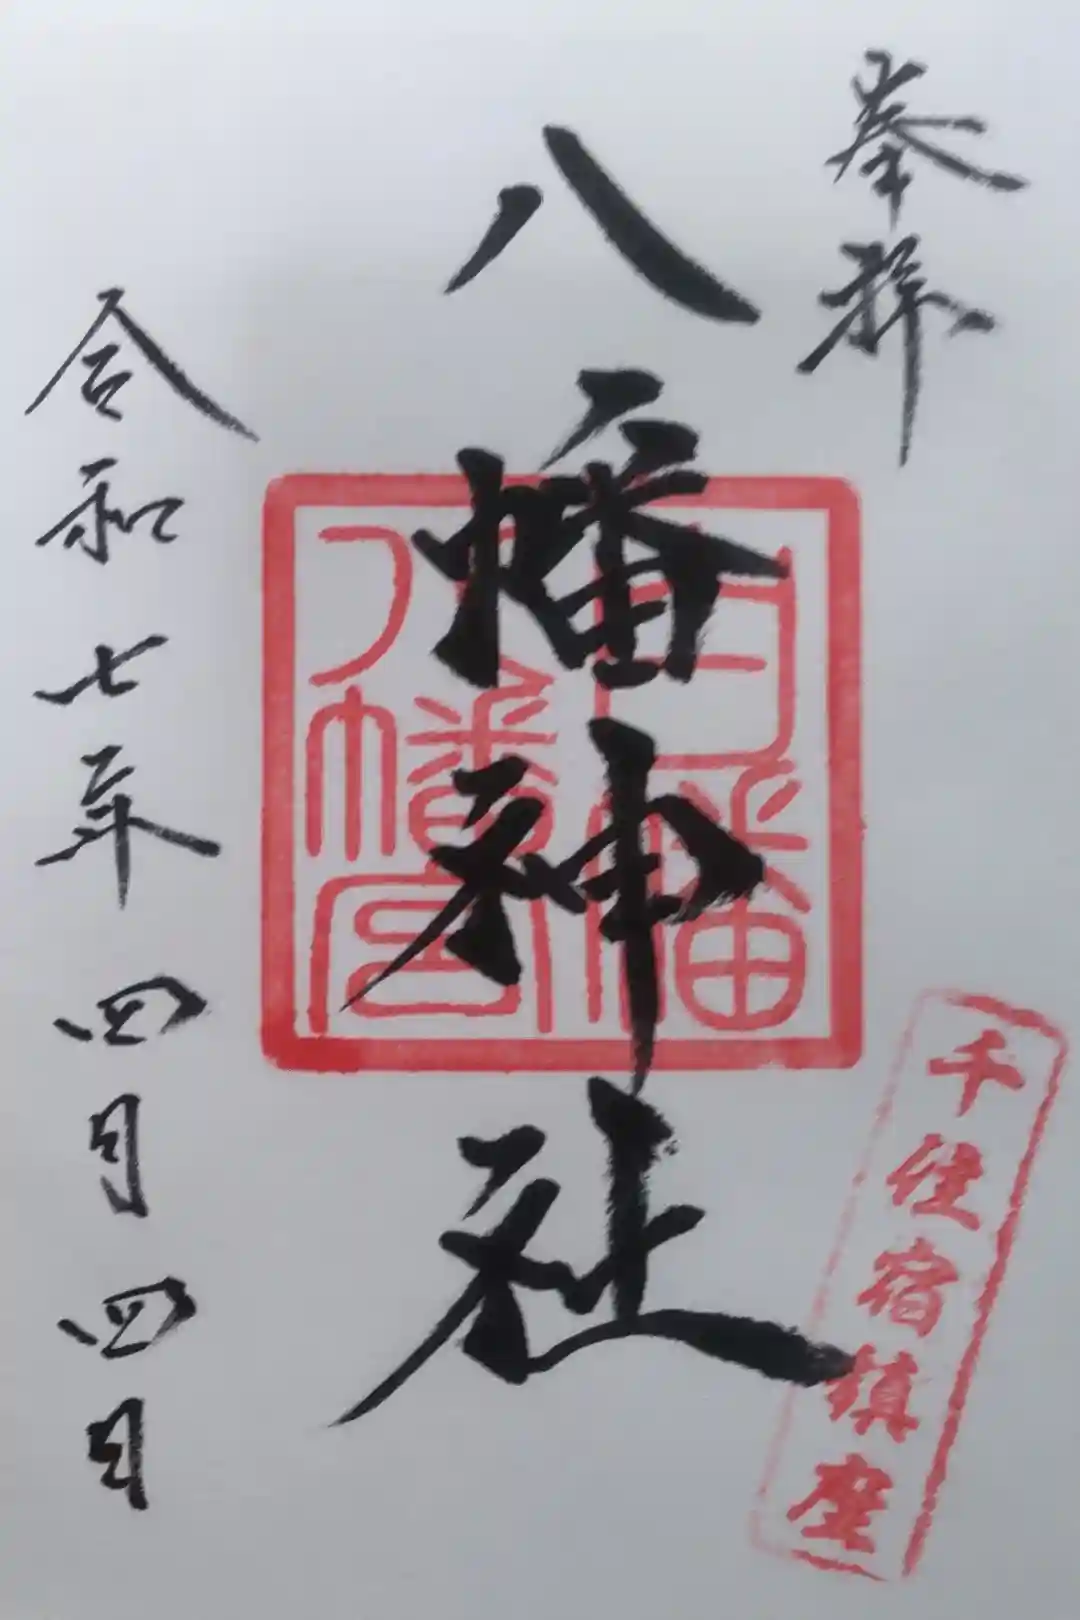 奉拝
八幡神社
八幡宮
千住宿鎮座
令和七年四月四日